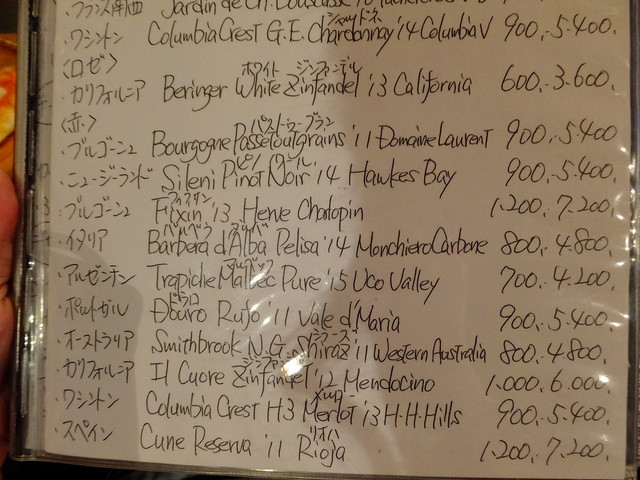 フランス南西 Jardin de Ch.
シャルドネ
・ワシントン Columbia Crest G.E. Chardonnay '14 Columbia V 900.- 5.400.
〈ロゼ〉
ホワイト ジンファンデル
・カリフォルニア Beringer White Zinfandel '13 California 600.- 3.600.
〈赤〉
パストゥーグラン
・ブルゴーニュ Bourgogne Passetoutgrains '11 Domaine Laurent 900.- 5.400
ピノ ノワール
・ニュージーランド Sileni Pinot Noir '14 Hawkes Bay 900.- 5.400.
フィクサン
・ブルゴーニュ Fixin '13 Herve Chatopin 1.200.- 7.200.
バルベラ アルバ
・イタリア Barbera d'Alba Pelisa '14 Monchiero Carbone 800.- 4.800.
マルベック
・アルゼンチン Trapiche Malbec Pure '15 Uco Valley 700.- 4.200.
ドウロ
・ポルトガル Douro Rufo '11 Vale d'Maria 900.- 5.400.
シラーズ
・オーストラリア Smithbrook N.G. Shiraz '11 Western Australia 800.- 4.800.
・カリフォルニア Il Cuore Zinfandel '12 Mendocino 1.000. 6.000.
メルロ
・ワシントン Columbia Crest H3 Merlot '13 H.H.Hills 900.- 5.400.
リオハ
・スペイン Cune Reserva '11 Rioja 1.200.- 7.200.